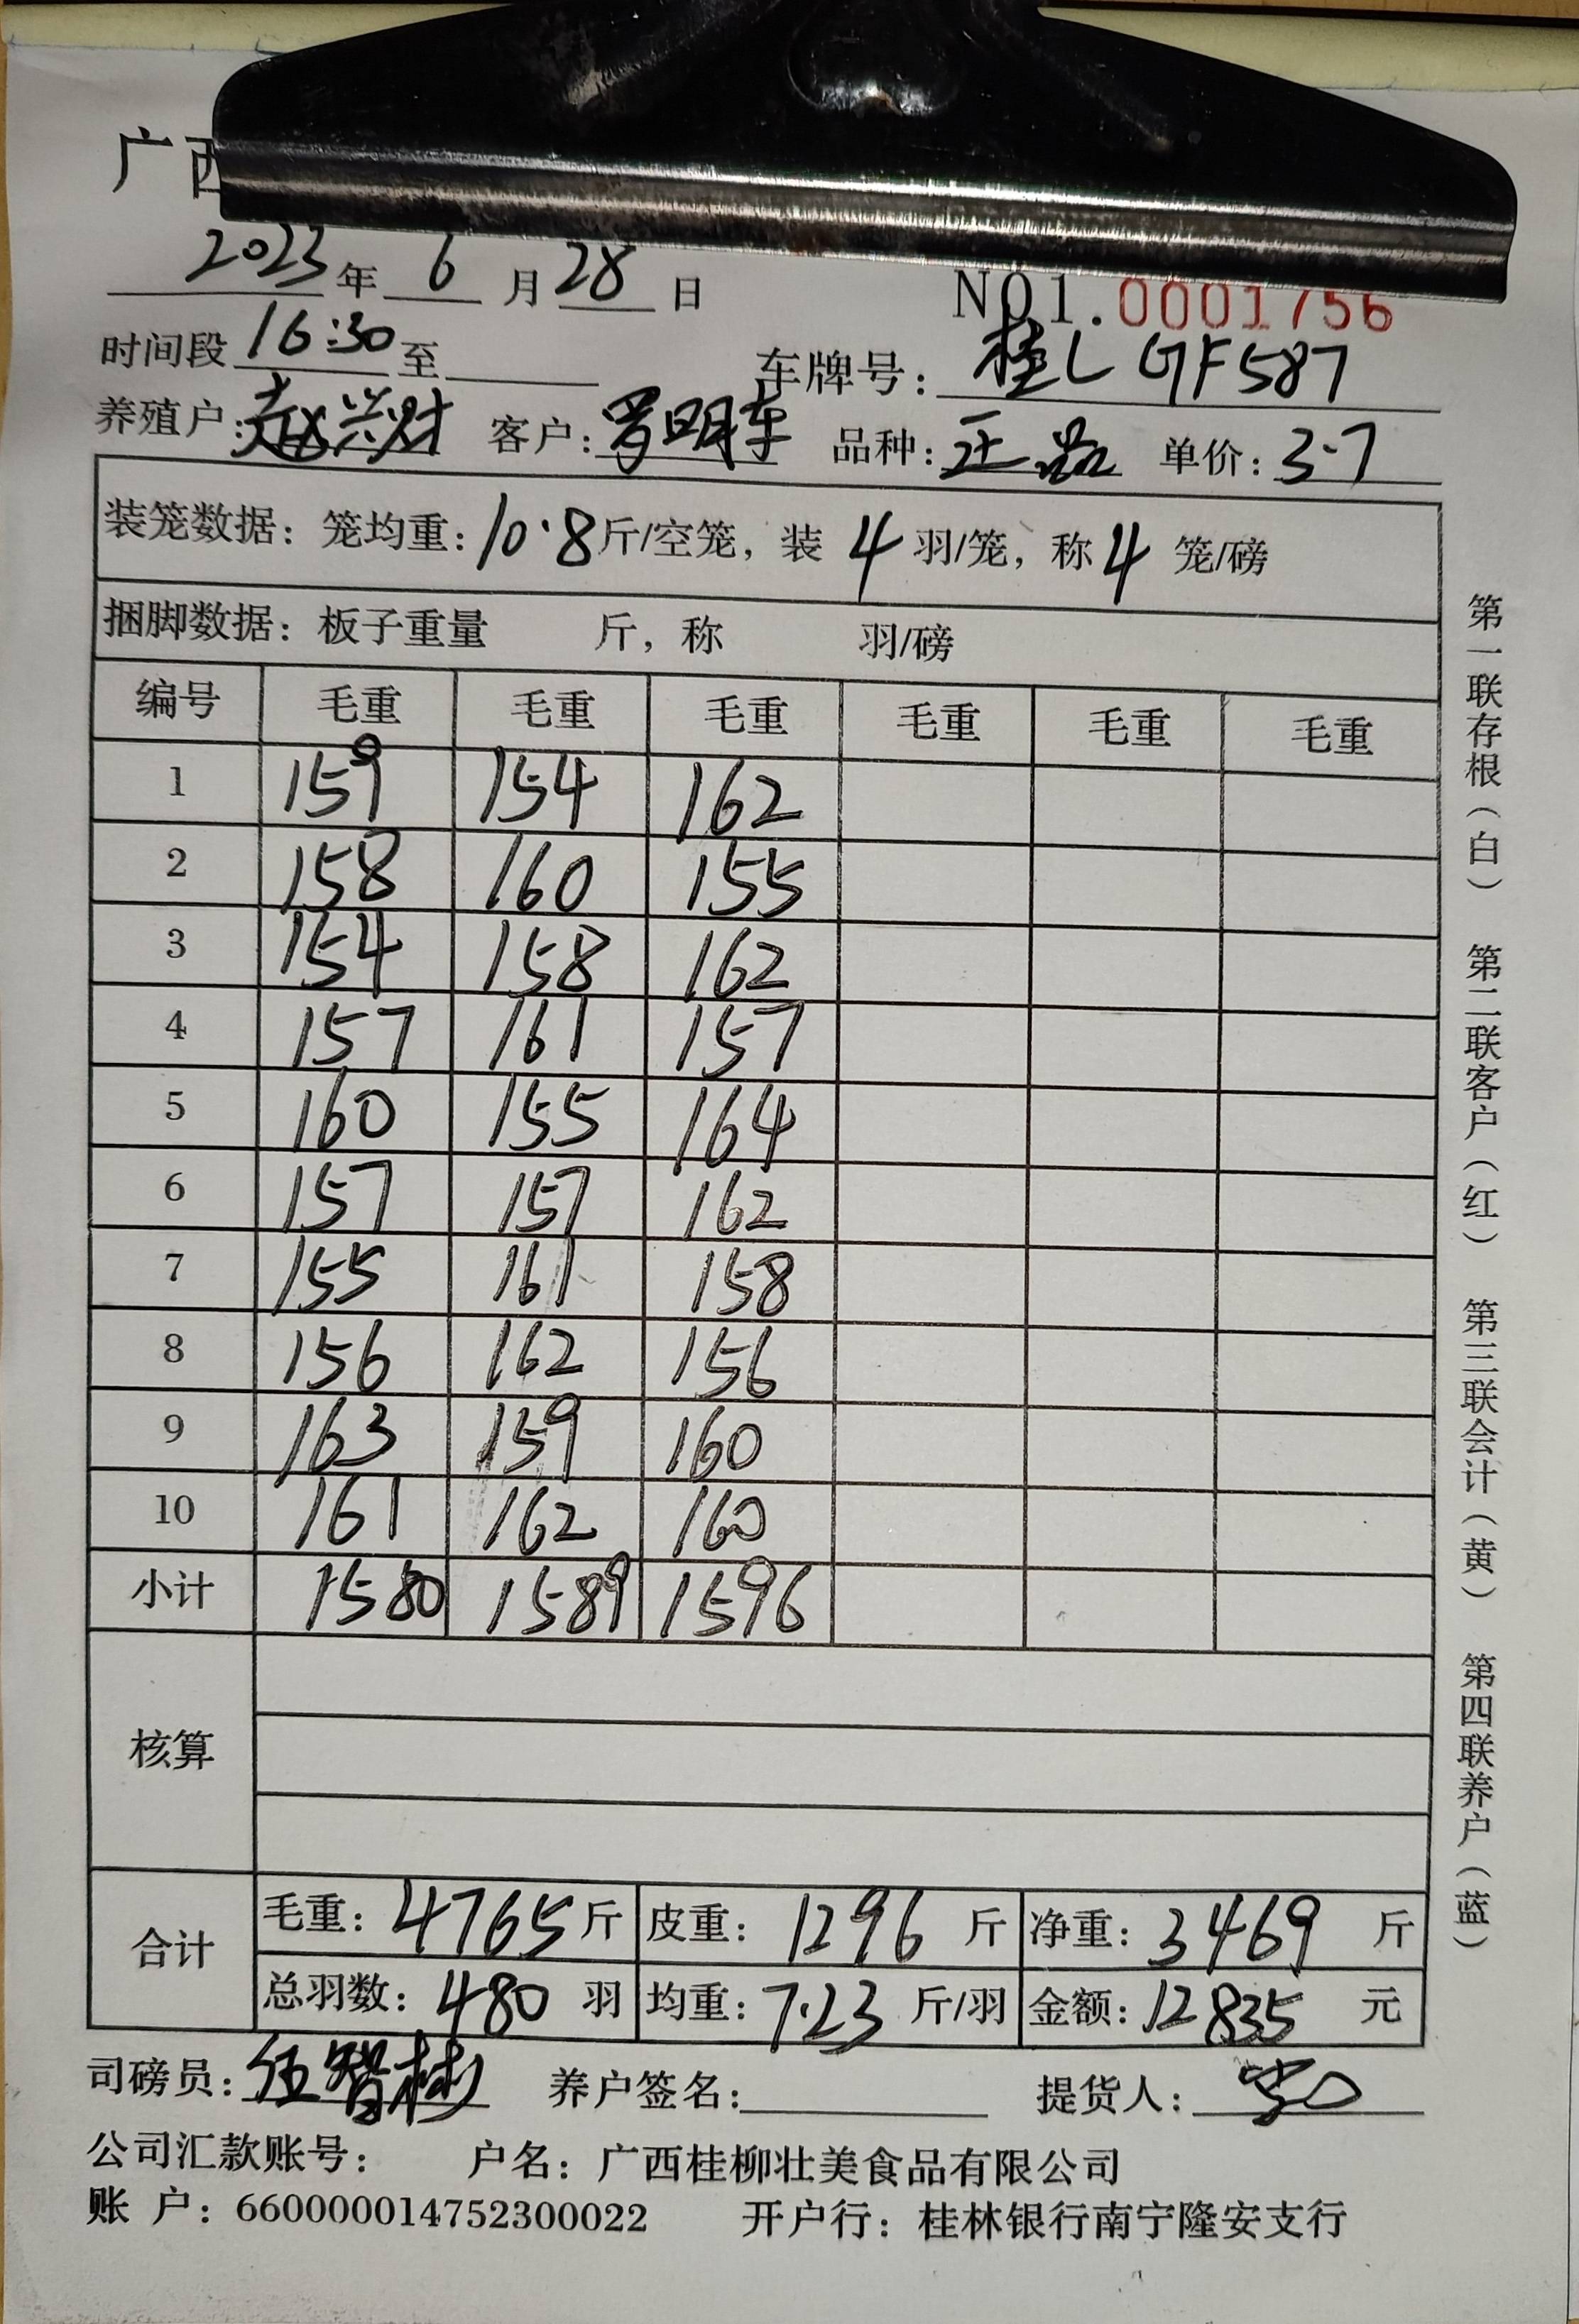 广西
2023年6月28日 NO1.0001756
时间段16:30至 车牌号：桂L GF587
养殖户：赵兴财 客户：罗明车 品种：正品 单价：3.7
装笼数据：笼均重：10.8斤/空笼，装4羽/笼，称4笼/磅
捆脚数据：板子重量 斤，称 羽/磅
编号 毛重 毛重 毛重 毛重 毛重 毛重
1 159 154 162
2 158 160 155
3 154 158 162
4 157 161 157
5 160 155 164
6 157 157 162
7 155 161 158
8 156 162 156
9 163 159 160
10 161 162 160
小计 1580 1589 1596
核算
合计
毛重：4765斤 皮重：1296斤 净重：3469斤
总羽数：480羽 均重：7.23斤/羽 金额：12835元
司磅员：伍智彬 养户签名： 提货人：
公司汇款账号： 户名：广西桂柳壮美食品有限公司
账 户：660000014752300022 开户行：桂林银行南宁隆安支行
第一联存根（白） 第二联客户（红） 第三联会计（黄） 第四联养户（蓝）